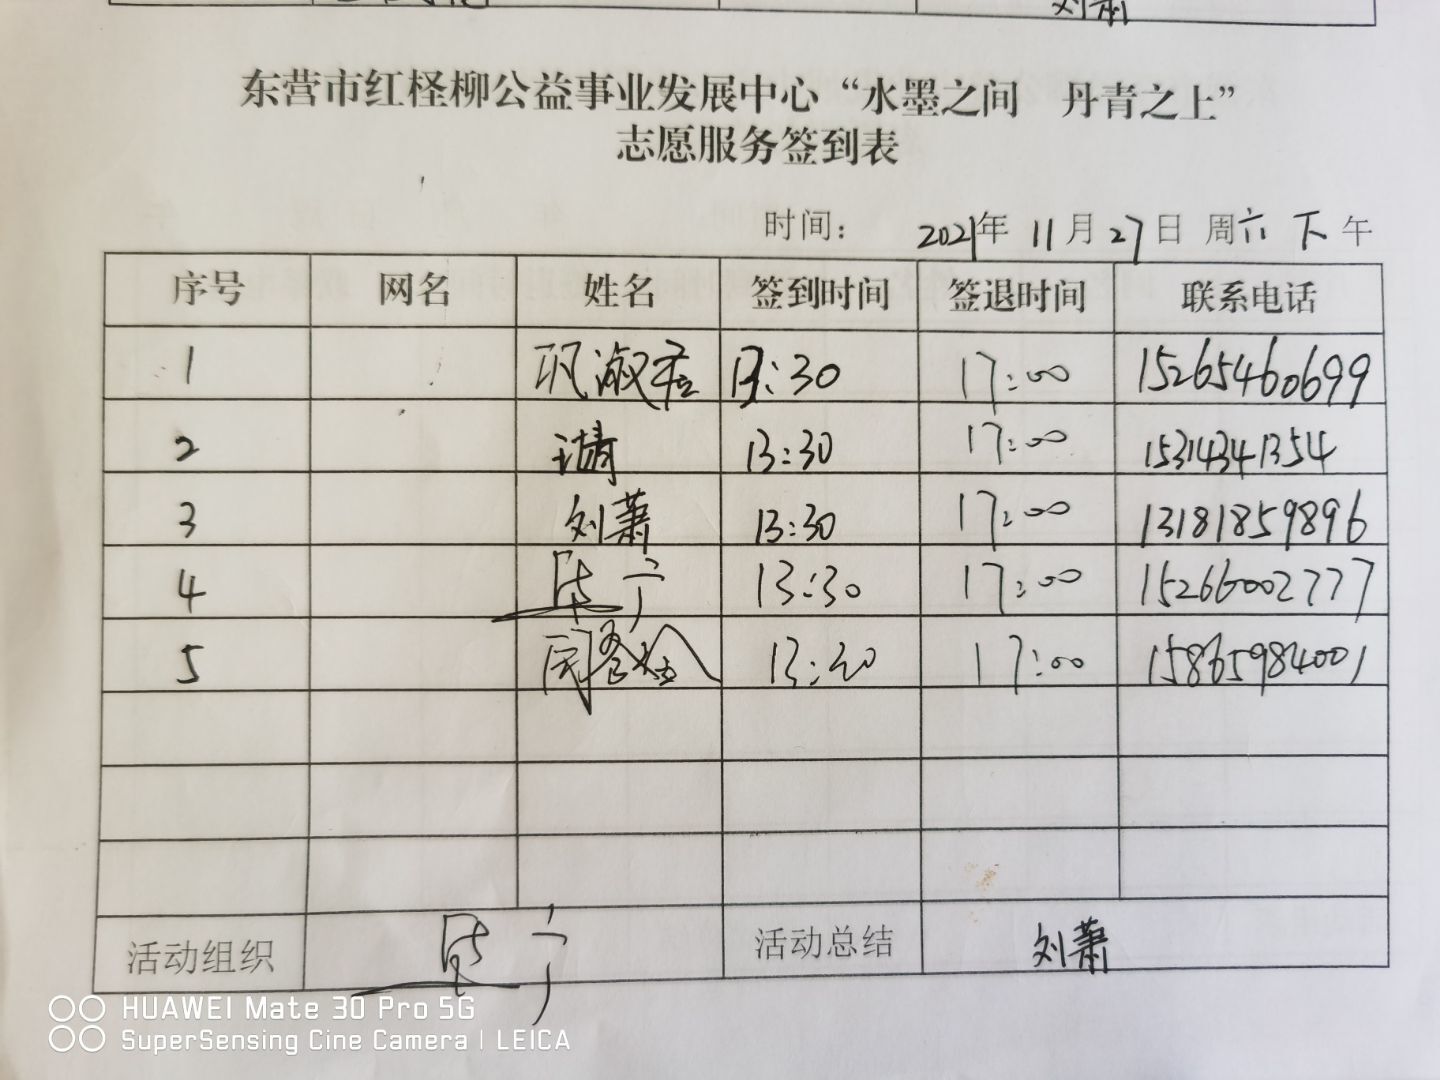 刘萧
东营市红柽柳公益事业发展中心“水墨之间 丹青之上”
志愿服务签到表
时间： 2021年 11月27日 周六 下午
序号 网名 姓名 签到时间 签退时间 联系电话
1 巩淑 13:30 17:00 15265460699
2 13:30 17:00 15314341354
3 刘萧 13:30 17:00 13181859896
4 13:30 17:00 15266002777
5 13:30 17:00 15865984001
活动组织 活动总结 刘萧
HUAWEI Mate 30 Pro 5G
SuperSensing Cine Camera | LEICA